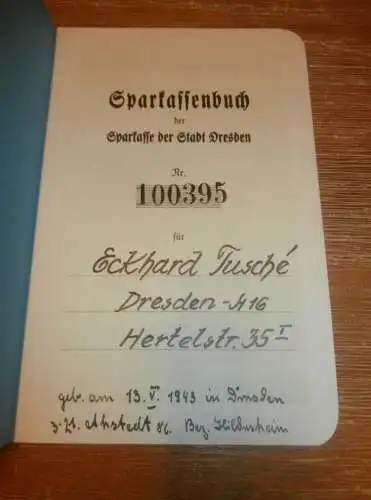 Sparkassenbuch
der
Sparkasse der Stadt Dresden
Nr.
100395
für
Eckhard Tusché
Dresden-A16
Hertelstr. 35 I
geb. am 13. V. 1943 in Dresden
z. Zt. Ahstedt 86. Bez. Hildesheim